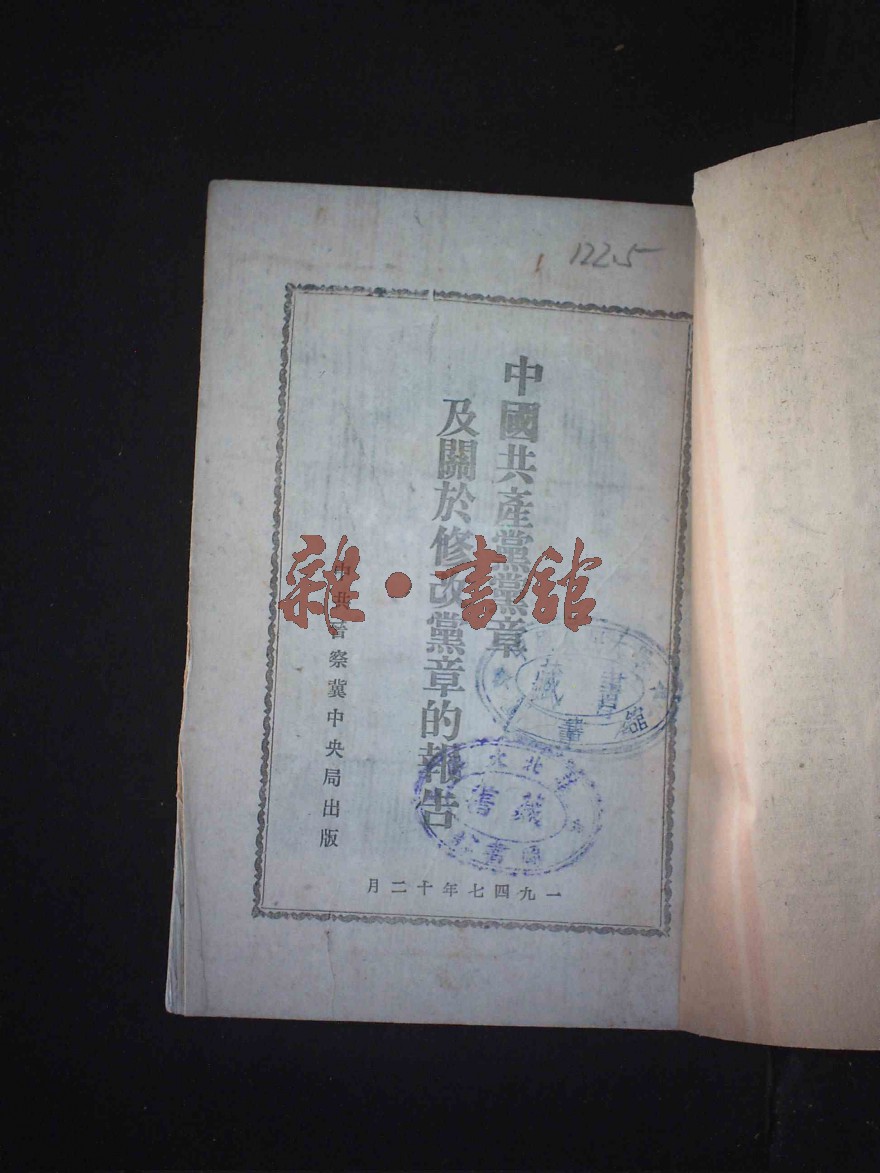 122.5
中國共產黨黨章
及關於修改黨章的報告
中共晉察冀中央局出版
一九四七年十二月
雜·書館
藏書
藏書